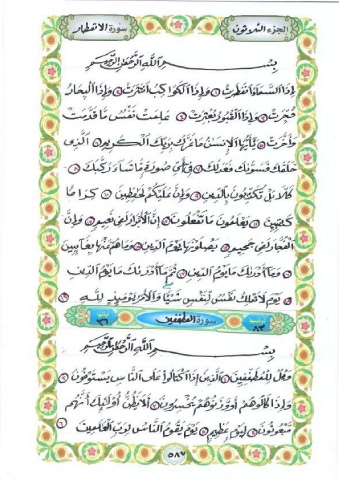 سورة الانفطار الجزء الثلاثون
بسم الله الرحمن الرحيم
إذا السماء انفطرت وإذا الكواكب انتثرت وإذا البحار
فجرت وإذا القبور بعثرت علمت نفس ما قدمت
وأخرت يأيها الإنسان ما غرك بربك الكريم الذى
خلقك فسوىك فعدلك فى أى صورة ما شاء ركبك
كلا بل تكذبون بالدين وإن عليكم لحفظين كراما
كتبين يعلمون ما تفعلون إن الأبرار لفى نعيم وإن
الفجار لفى جحيم يصلونها يوم الدين وما هم عنها بغائبين
وما أدرىك ما يوم الدين ثم ما أدرىك ما يوم الدين
يوم لا تملك نفس لنفس شيئا والأمر يومئذ لله ١٩
سورة المطففين ٨٣ ٣٦
بسم الله الرحمن الرحيم
ويل للمطففين الذين إذا اكتالوا على الناس يستوفون
وإذا كالوهم أو وزنوهم يخسرون ألا يظن أولئك أنهم
مبعوثون ليوم عظيم يوم يقوم الناس لرب العلمين ٦
٥٨٧